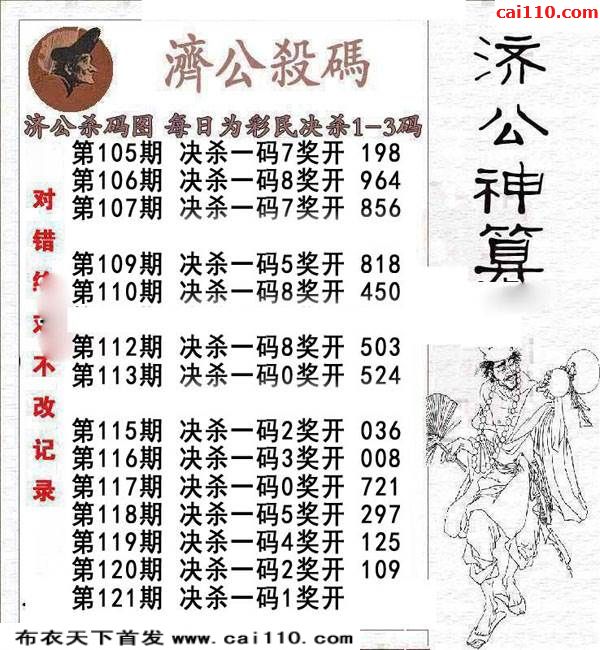 cai110.com
濟公殺碼
济公神算
济公杀码图 每日为彩民决杀1-3码
第105期 决杀一码7奖开 198
第106期 决杀一码8奖开 964
第107期 决杀一码7奖开 856
第109期 决杀一码5奖开 818
第110期 决杀一码8奖开 450
第112期 决杀一码8奖开 503
第113期 决杀一码0奖开 524
第115期 决杀一码2奖开 036
第116期 决杀一码3奖开 008
第117期 决杀一码0奖开 721
第118期 决杀一码5奖开 297
第119期 决杀一码4奖开 125
第120期 决杀一码2奖开 109
第121期 决杀一码1奖开
对错 不改记录
布衣天下首发 www.cai110.com